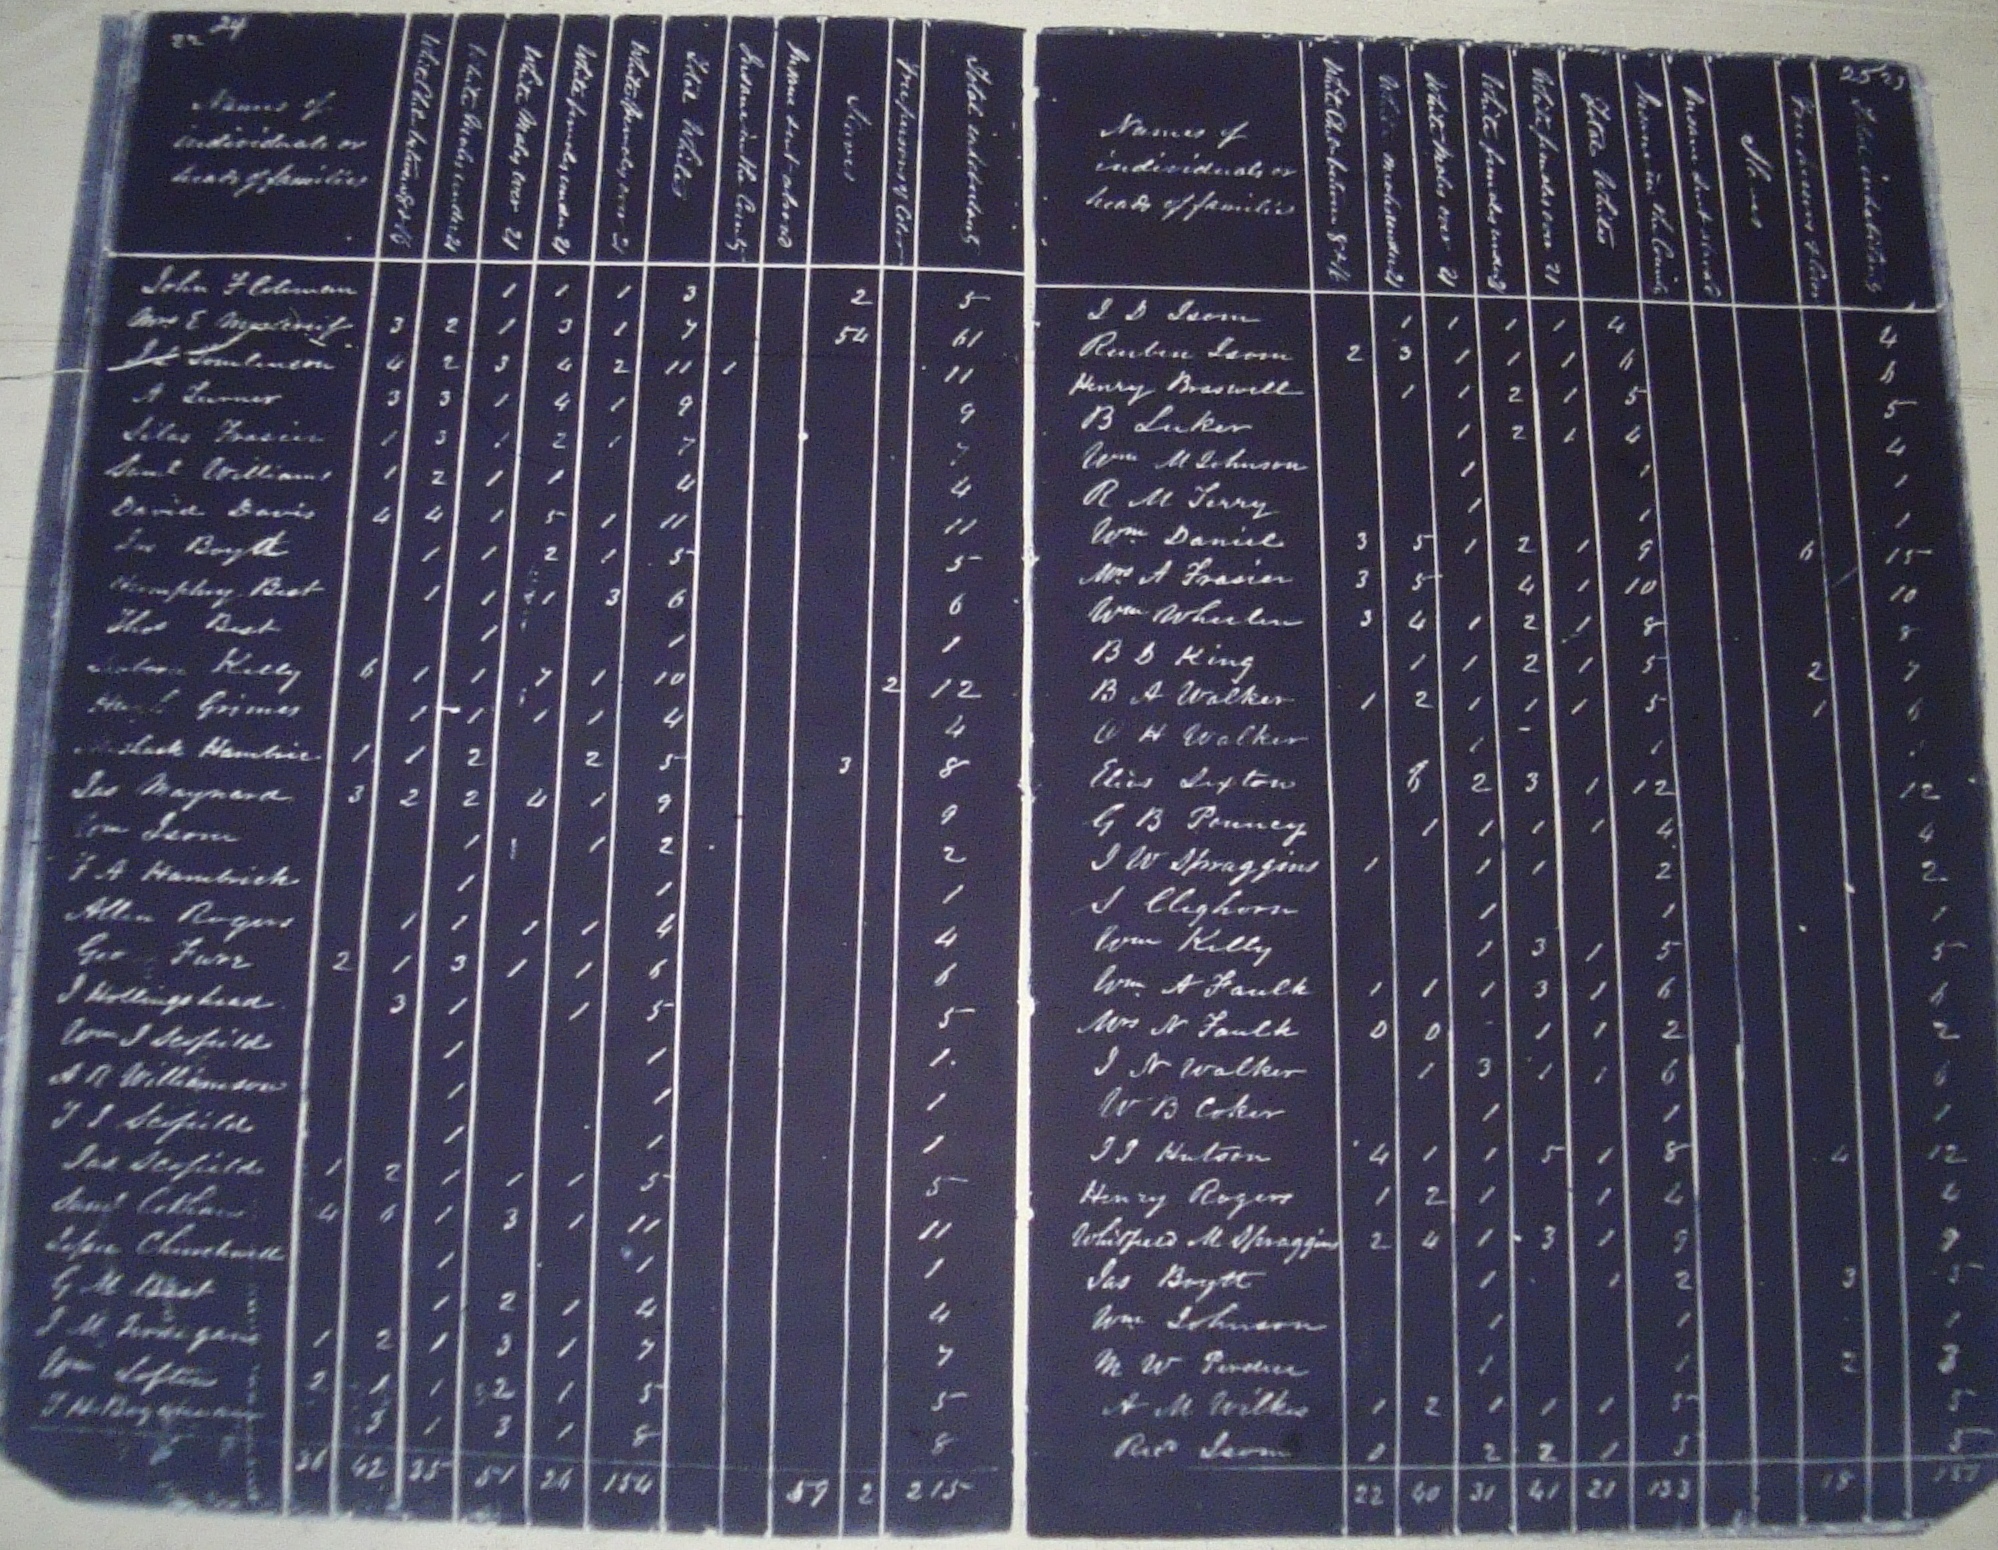 22 24
Names of individuals or heads of families
White Males under 21
White Males over 21
White females under 21
White females over 21
Total Whites
Insane in the County
Insane sent abroad
Slaves
Free persons of Color
Total inhabitants
John F Coleman 1 1 1 3 2 5
Mrs E 3 2 1 3 1 7 54 61
Tomlinson 4 2 3 4 2 11 1 11
A Turner 3 3 1 4 1 9 9
Silas Frasier 1 3 1 2 1 7 7
Saml Williams 1 2 1 1 4 4
David Davis 4 4 1 5 1 11 11
Jas Boytt 1 1 2 1 5 5
Humphrey Best 1 1 1 3 6 6
Thos Best 1 1 1
Kelly 6 1 1 7 1 10 2 12
Hugh Grimes 1 1 1 1 4 4
Hambric 1 1 2 2 5 3 8
Jas Maynard 3 2 2 4 1 9 9
Wm Isom 1 1 2 2
F A Hambrick 1 1 1
Allen Rogers 1 1 1 1 4 4
Geo Furr 2 1 3 1 1 6 6
J Hollingshead 3 1 1 5 5
Wm J Scofield 1 1 1
A R Williamson 1 1 1
T J Scofield 1 1 1
Jas Scofield 1 2 1 1 1 5 5
Saml 4 6 1 3 1 11 11
Churchwell 1 1 1
G M Best 1 2 1 4 4
J M 1 2 1 3 1 7 7
Wm Loften 2 1 1 2 1 5 5
T H 3 1 3 1 8 8
42 35 51 26 154 59 2 215
25 23
Names of individuals or heads of families
White males under 21
White Males over 21
White females under 21
White females over 21
Total Whites
Insane in the County
Insane sent abroad
Slaves
Total inhabitants
J D Isom 1 1 1 1 4 4
Reuben Isom 2 3 1 1 1 6 6
Henry Braswell 1 1 2 1 5 5
B Luker 1 2 1 4 4
Wm M Johnson 1 1 1
R M Terry 1 1 1
Wm Daniel 3 5 1 2 1 9 6 15
Mrs A Frasier 3 5 4 1 10 10
Wm Wheeler 3 4 1 2 1 8 8
B D King 1 1 2 1 5 2 7
B A Walker 1 2 1 1 1 5 1 6
H Walker 1 - 1 1
Elias Sexton 6 2 3 1 12 12
G B Pouncey 1 1 1 1 4 4
J W Spraggins 1 1 1 2 2
S Cleghorn 1 1 1
Wm Kelly 1 3 1 5 5
Wm A Faulk 1 1 1 3 1 6 6
Mrs N Faulk 0 0 - 1 1 2 2
J N Walker 1 3 1 1 6 6
W B Coker 1 1 1
J J Hutson 4 1 1 5 1 8 4 12
Henry Rogers 1 2 1 1 4 4
Whitfield M Spraggins 2 4 1 3 1 9 9
Jas Boytt 1 1 2 3 5
Wm Johnson 1 1 1
M W Perdue 1 1 2 3
A M Wilkes 1 2 1 1 1 5 5
Isom 0 2 2 1 5 5
22 40 31 41 21 133 18 151